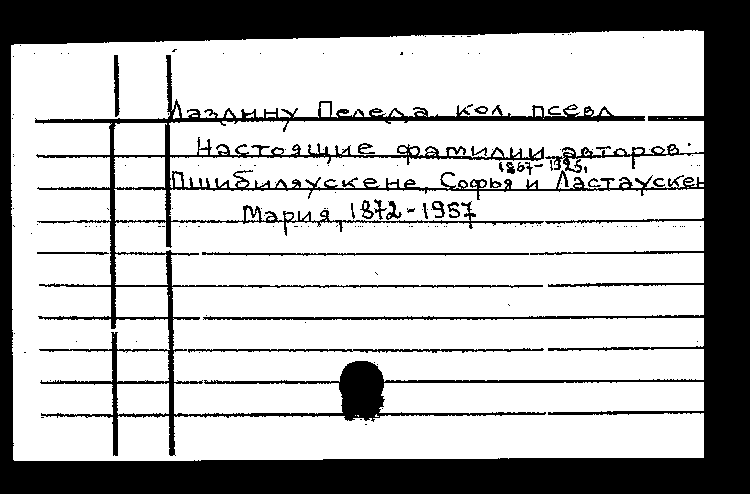 Лаздину Пеледа, кол. псевд
Настоящие фамилии авторов:
1867-1925,
Пшибиляускене, Софья и Ластаускен
Мария, 1872-1957